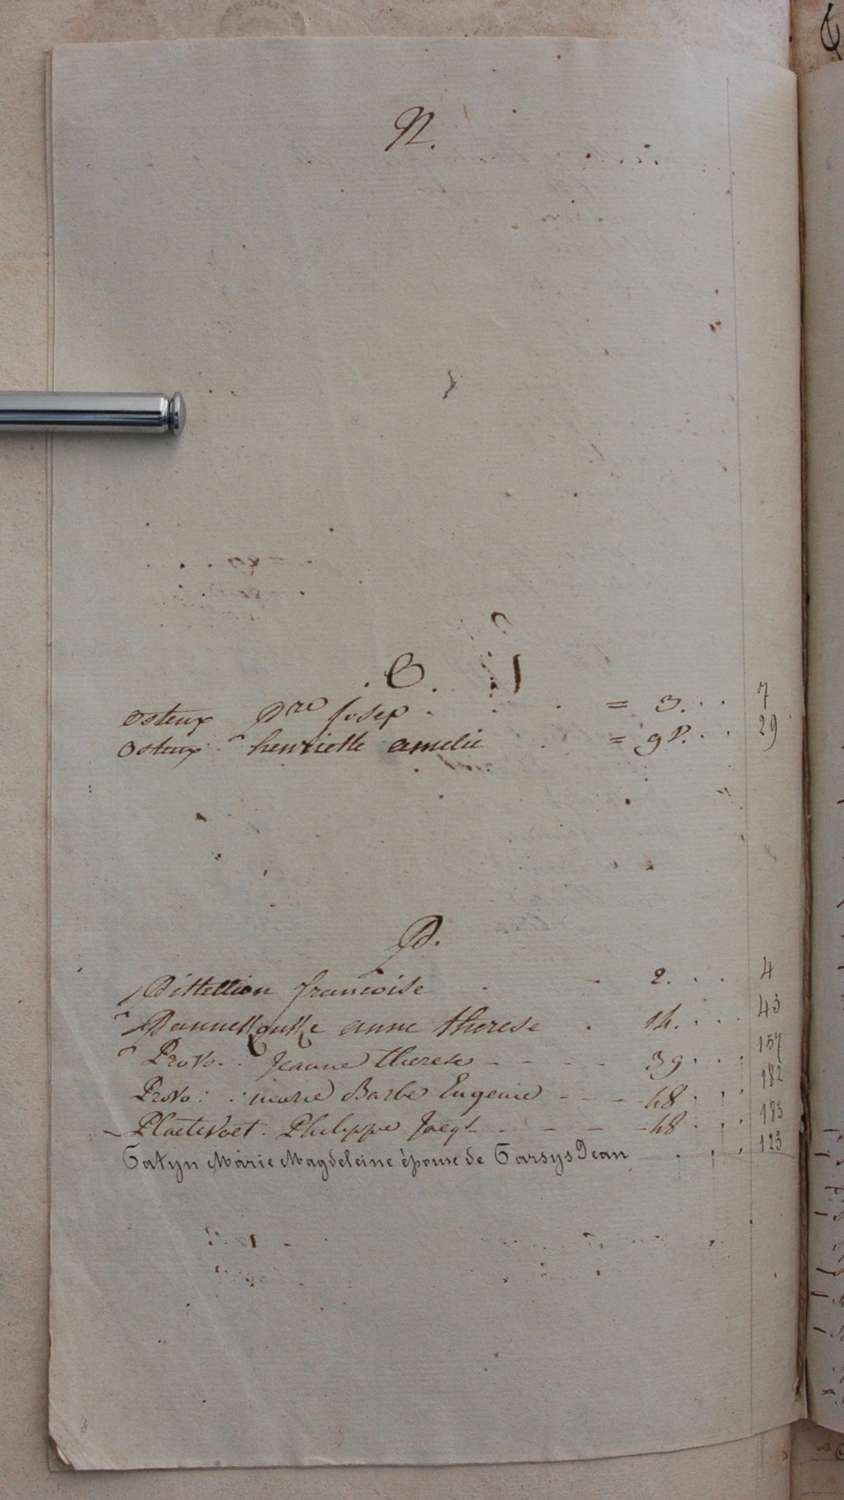 N.
O.
osteux Pre Josep = 3. 7
osteux henriette amelie = 9 29
P.
Pittellion francoise 2. 4
anne therese 14. 43
Provo. Jeanne therese 39 157
Provo: marie Barbe Eugenie 48 182
Plaetevoet. Philippe Jacqt 48 183
Patyn Marie Magdeleine épouse de Parsys Jean 123